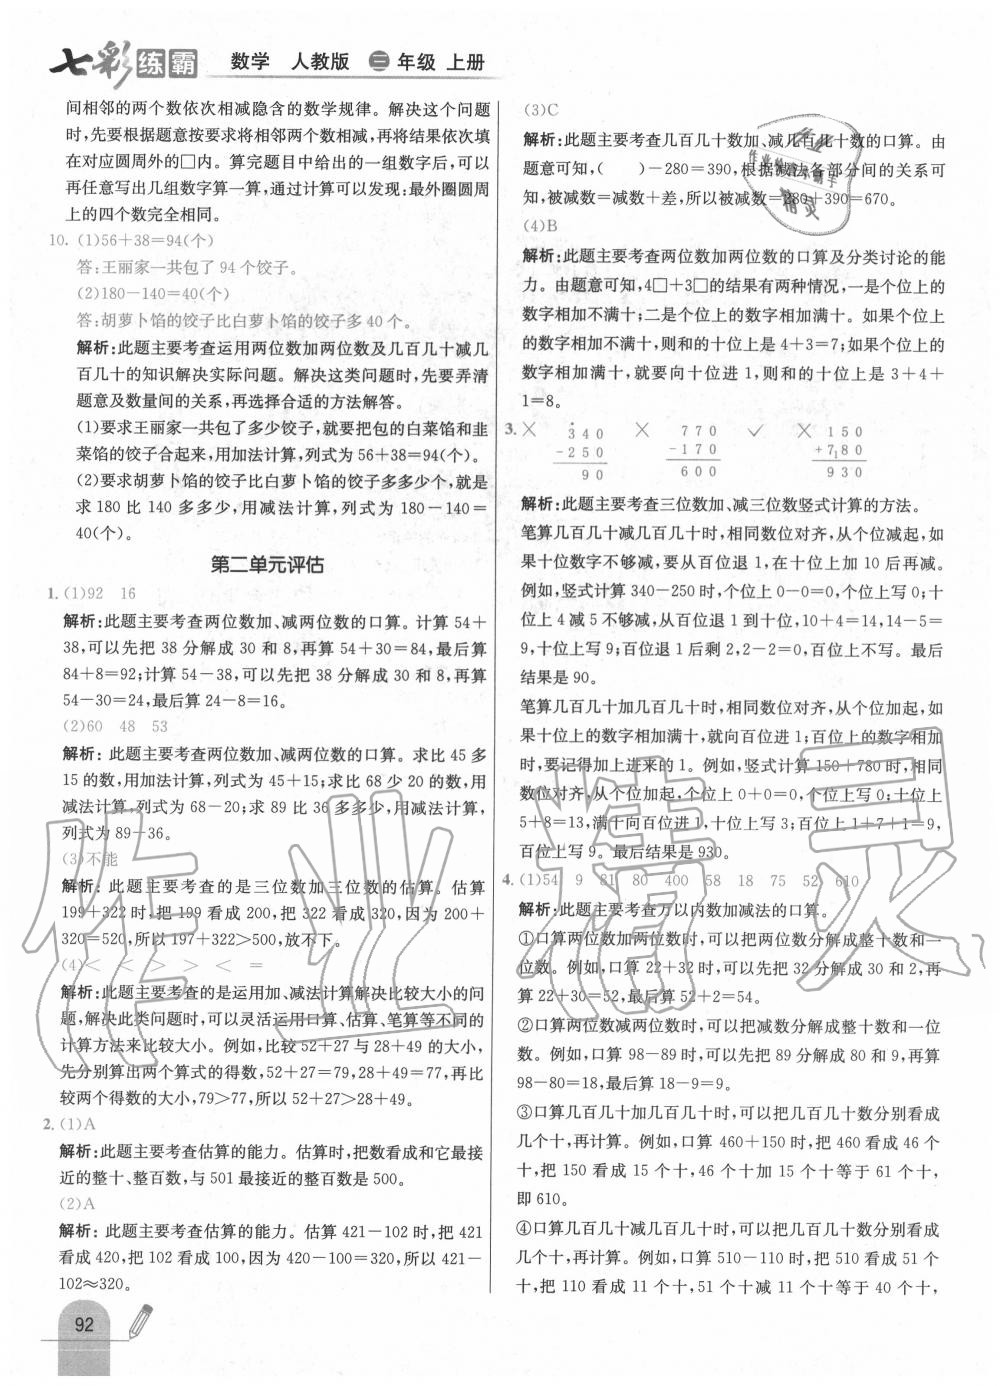 七彩练霸 数学 人教版 三年级 上册
间相邻的两个数依次相减隐含的数学规律。解决这个问题
时,先要根据题意按要求将相邻两个数相减,再将结果依次填
在对应圆周外的□内。算完题目中给出的一组数字后,可以
再任意写出几组数字算一算,通过计算可以发现:最外圈圆周
上的四个数完全相同。
10. (1)56+38=94(个)
答:王丽家一共包了94个饺子。
(2)180-140=40(个)
答:胡萝卜馅的饺子比白萝卜馅的饺子多40个。
解析:此题主要考查运用两位数加两位数及几百几十减几
百几十的知识解决实际问题。解决这类问题时,先要弄清
题意及数量间的关系,再选择合适的方法解答。
(1)要求王丽家一共包了多少饺子,就要把包的白菜馅和韭
菜馅的饺子合起来,用加法计算,列式为56+38=94(个)。
(2)要求胡萝卜馅的饺子比白萝卜馅的饺子多多少个,就是
求180比140多多少,用减法计算,列式为180-140=
40(个)。
第二单元评估
1. (1)92 16
解析:此题主要考查两位数加、减两位数的口算。计算54+
38,可以先把38分解成30和8,再算54+30=84,最后算
84+8=92;计算54-38,可以先把38分解成30和8,再算
54-30=24,最后算24-8=16。
(2)60 48 53
解析: 此题主要考查两位数加、减两位数的口算。求比45多
15的数,用加法计算,列式为45+15;求比68少20的数,用
减法计算,列式为68-20;求89比36多多少,用减法计算,
列式为89-36。
(3)不能
解析: 此题主要考查的是三位数加三位数的估算。估算
199+322时,把199看成200,把322看成320,因为200+
320=520,所以197+322>500,放不下。
(4)< < > > < =
解析:此题主要考查的是运用加、减法计算解决比较大小的问
题,解决此类问题时,可以灵活运用口算、估算、笔算等不同的
计算方法来比较大小。例如,比较52+27与28+49的大小,
先分别算出两个算式的得数,52+27=79,28+49=77,再比
较两个得数的大小,79>77,所以52+27>28+49。
2. (1)A
解析:此题主要考查估算的能力。估算时,把数看成和它最接
近的整十、整百数,与501最接近的整百数是500。
(2)A
解析: 此题主要考查估算的能力。估算421-102时,把421
看成420,把102看成100,因为420-100=320,所以421-
102≈320。
92
(3)C
解析:此题主要考查几百几十数加、减几百几十数的口算。由
题意可知,( )-280=390,根据减法各部分间的关系可
知,被减数=减数+差,所以被减数=280+390=670。
(4)B
解析:此题主要考查两位数加两位数的口算及分类讨论的能
力。由题意可知,4□+3□的结果有两种情况,一是个位上的
数字相加不满十;二是个位上的数字相加满十。如果个位上
的数字相加不满十,则和的十位上是4+3=7;如果个位上的
数字相加满十,就要向十位进1,则和的十位上是3+4+
1=8。
3. × 340 × 770 ✓ × 150
-250 -170 +780
90 600 930
解析:此题主要考查三位数加、减三位数竖式计算的方法。
笔算几百几十减几百几十时,相同数位对齐,从个位减起,如
果十位数字不够减,要从百位退1,在十位上加10后再减。
例如,竖式计算340-250时,个位上0-0=0,个位上写0;十
位上4减5不够减,从百位退1到十位,10+4=14,14-5=
9,十位上写9;百位退1后剩2,2-2=0,百位上不写。最后
结果是90。
笔算几百几十加几百几十时,相同数位对齐,从个位加起,如
果十位上的数字相加满十,就向百位进1,百位上的数字相加
时,要记得加上进来的1。例如,竖式计算150+780时,相同
数位对齐,从个位加起,个位上0+0=0,个位上写0;十位上
5+8=13,满十向百位进1,十位上写3;百位上1+7+1=9,
百位上写9。最后结果是930。
4. (1)54 9 81 80 400 58 18 75 52 610
解析:此题主要考查万以内数加减法的口算。
①口算两位数加两位数时,可以把两位数分解成整十数和一
位数。例如,口算22+32时,可以先把32分解成30和2,再
算22+30=52,最后算52+2=54。
②口算两位数减两位数时,可以把减数分解成整十数和一位
数。例如,口算98-89时,可以先把89分解成80和9,再算
98-80=18,最后算18-9=9。
③口算几百几十加几百几十时,可以把几百几十数分别看成
几个十,再计算。例如,口算460+150时,把460看成46个
十,把150看成15个十,46个十加15个十等于61个十,
即610。
④口算几百几十减几百几十时,可以把几百几十数分别看成
几个十,再计算。例如,口算510-110时,把510看成51个
十,把110看成11个十,51个十减11个十等于40个十,
作业精灵